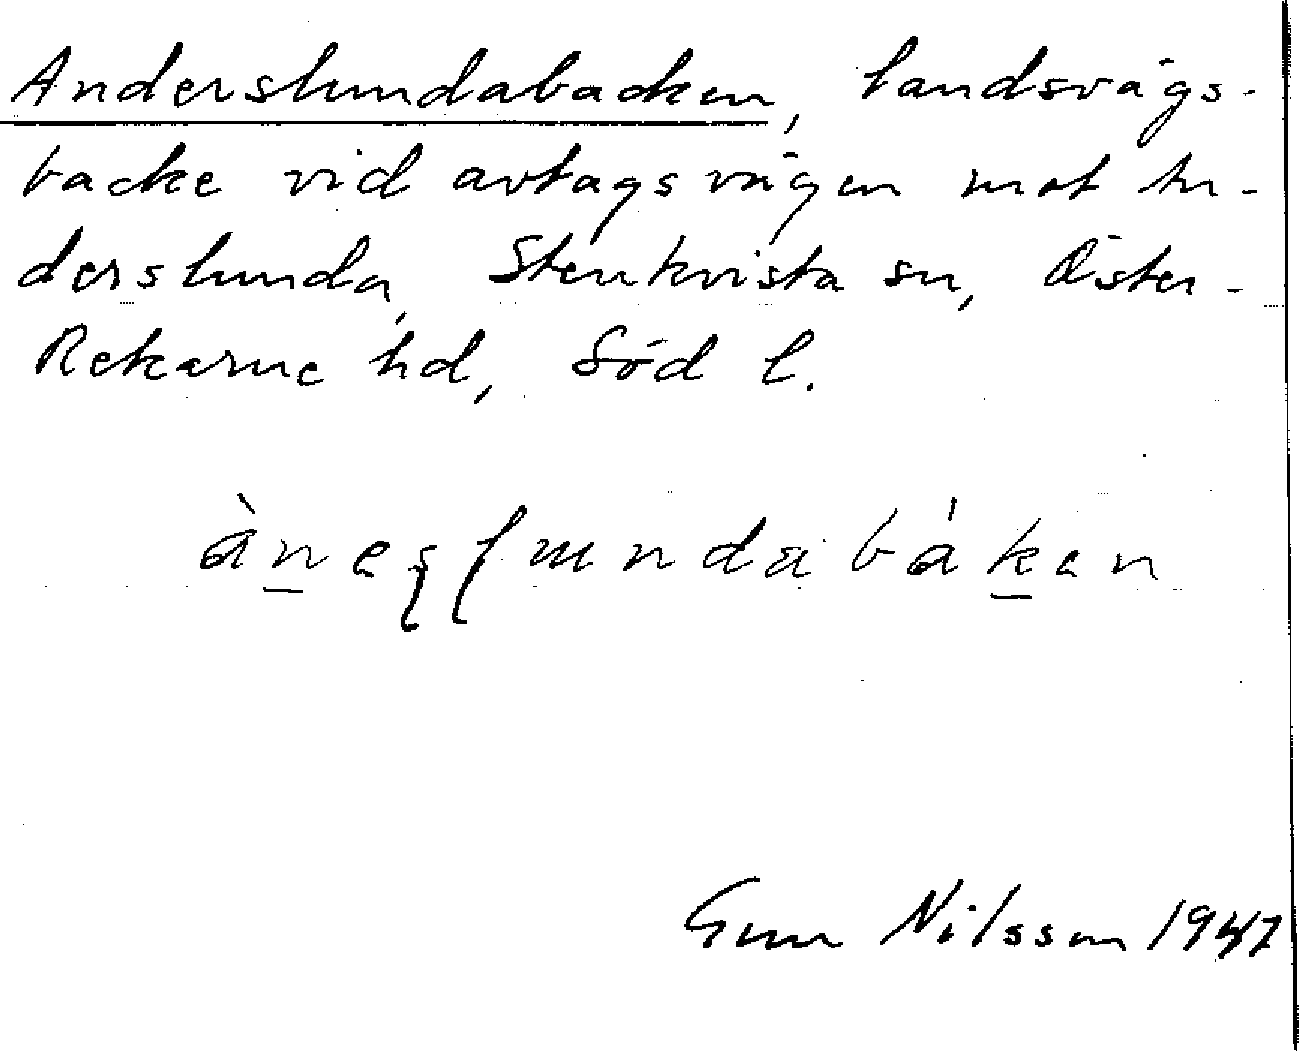 Anderslundabacken, landsvägs-
backe vid avtagsvägen mot An-
derslunda, Stenkvista sn, Öster-
Rekarne hd, Söd l.
Gun Nilsson 1947